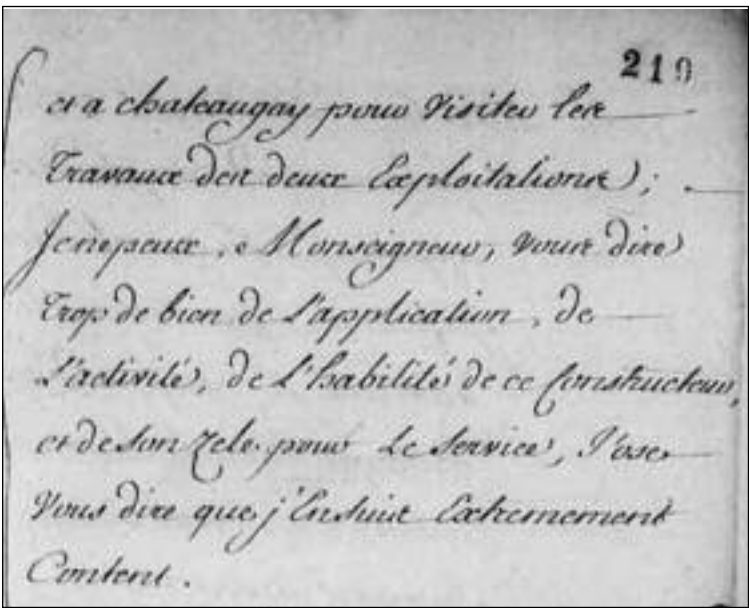 219
et a chateaugay pour visiter les
Travaux des deux Exploitations;
Je ne peux, Monseigneur, vous dire
Trop de bien de L'application, de
L'activité, de L'habilité de ce Constructeur,
et de son zele pour Le service, J'ose
Vous dire que j'En suis Extremement
Content.